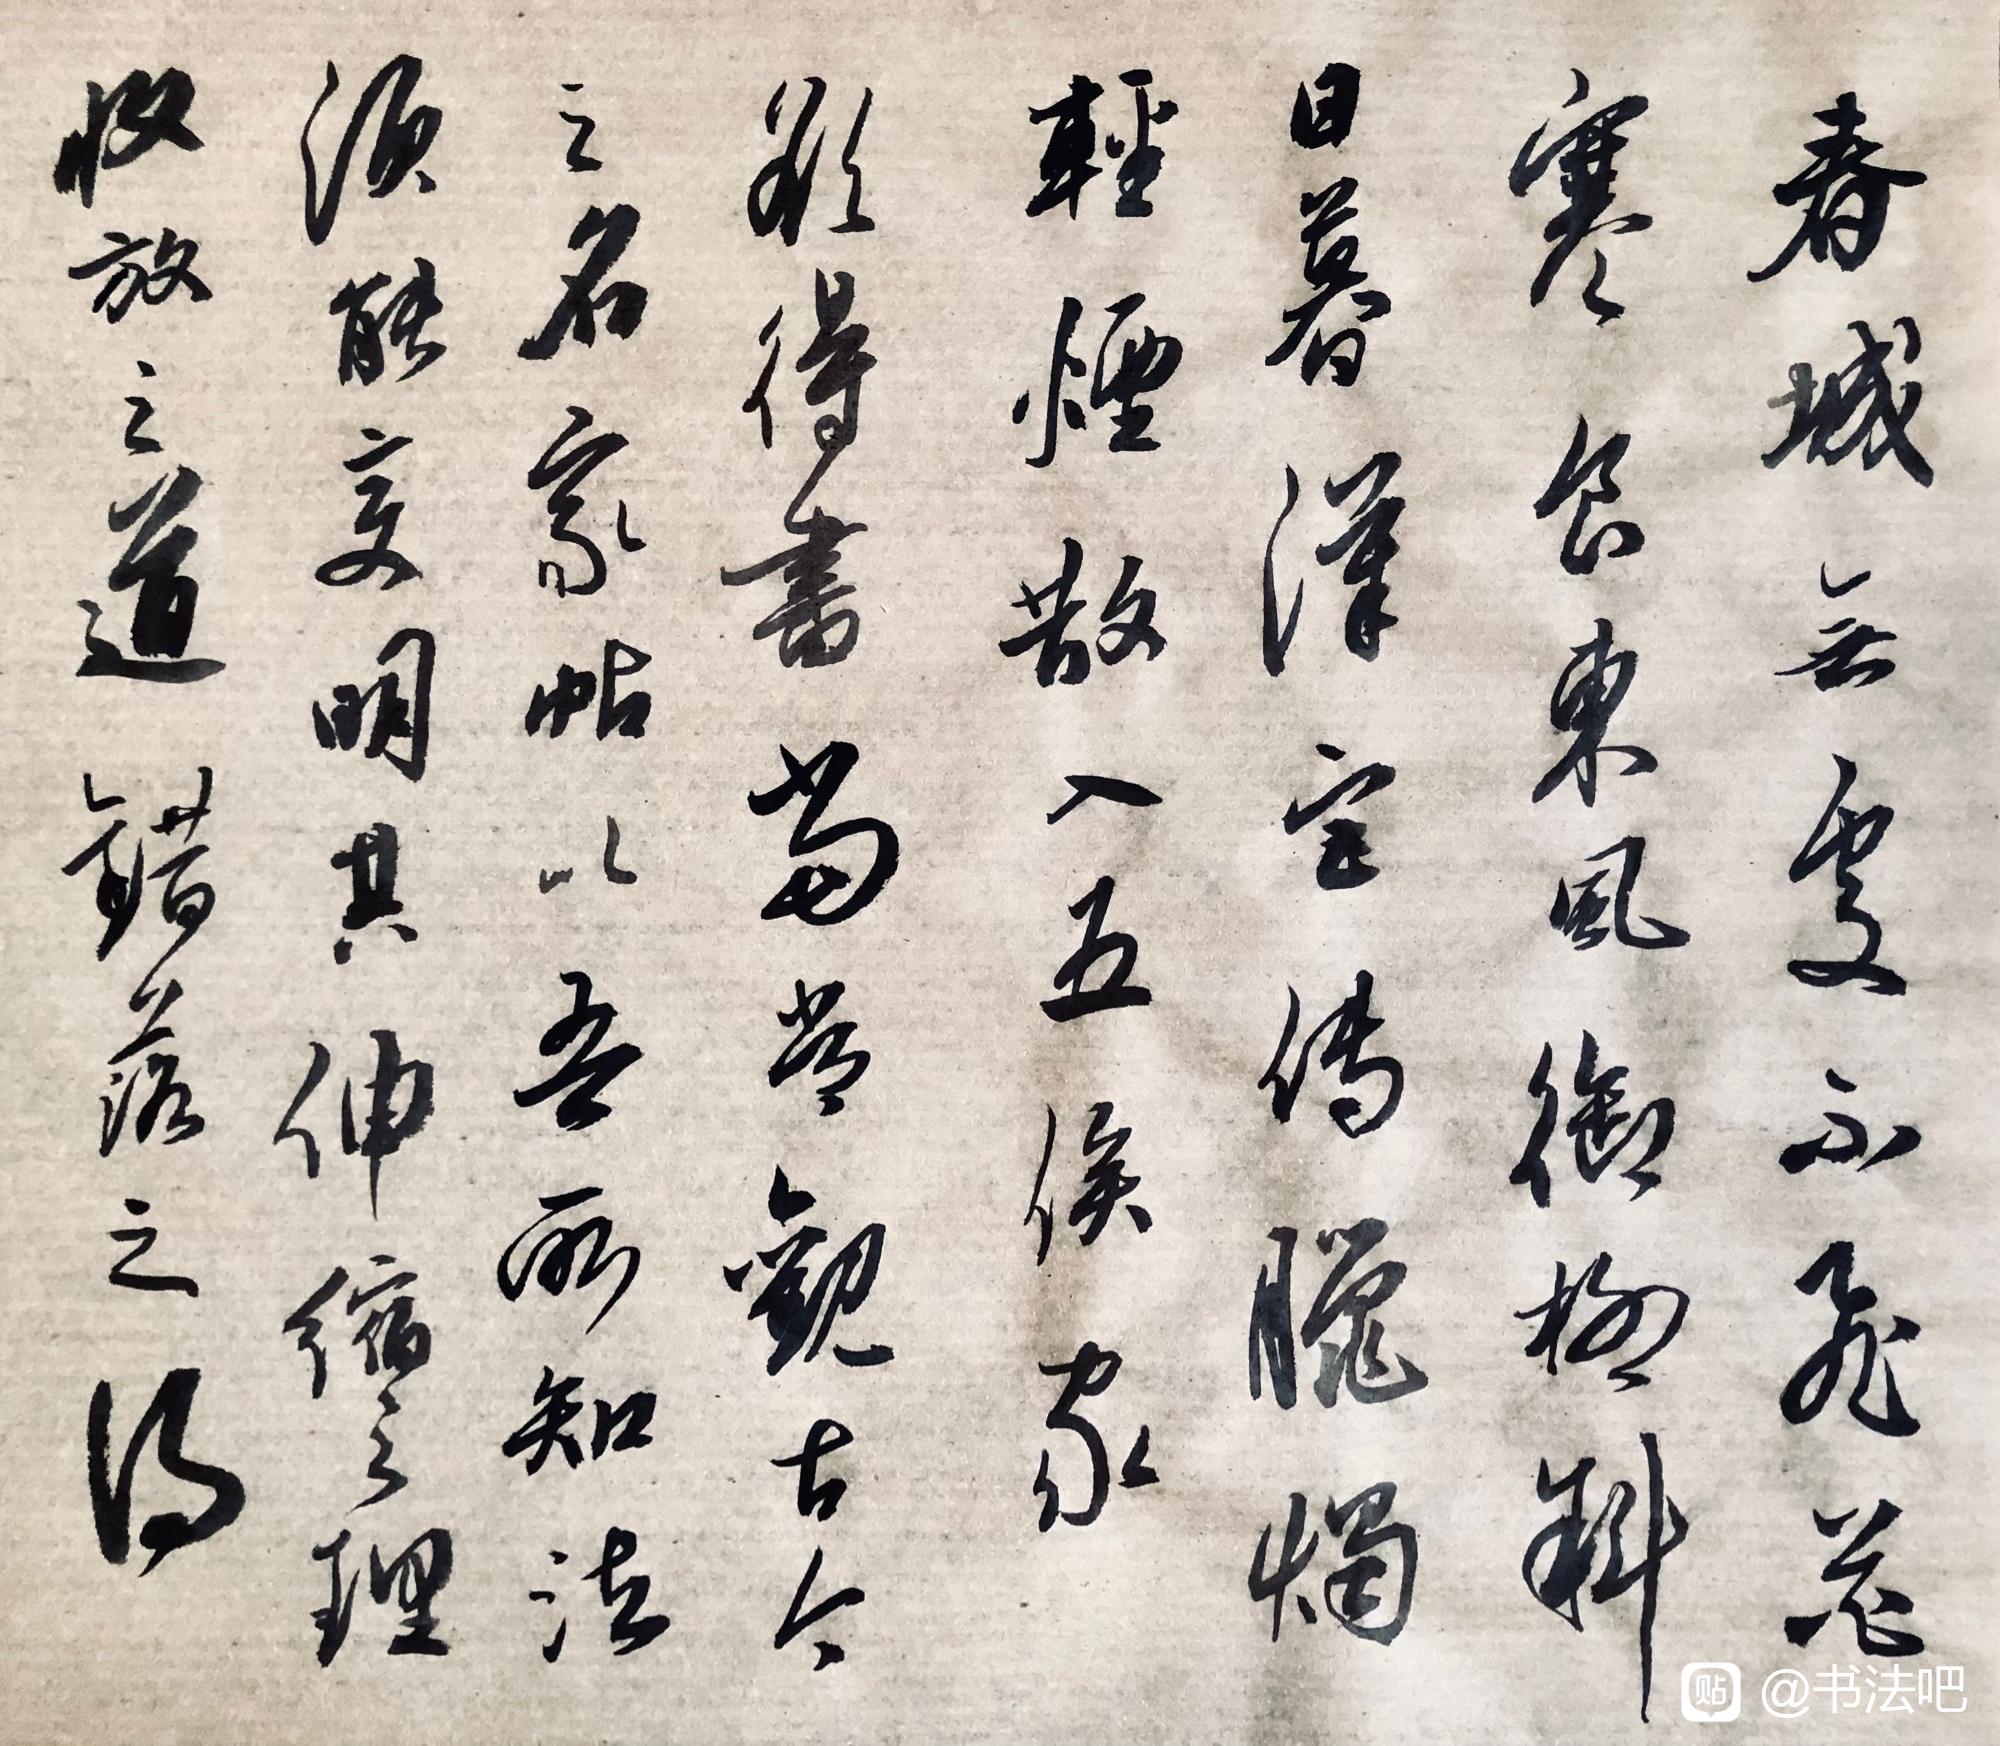 春城無處不飛花
寒食東風御柳斜
日暮漢宮傳臘燭
輕煙散入五侯家
欲得書當常觀古今
之名家帖以吾所知法
須能變明其伸縮之理
收放之道錯落之得
贴 @书法吧